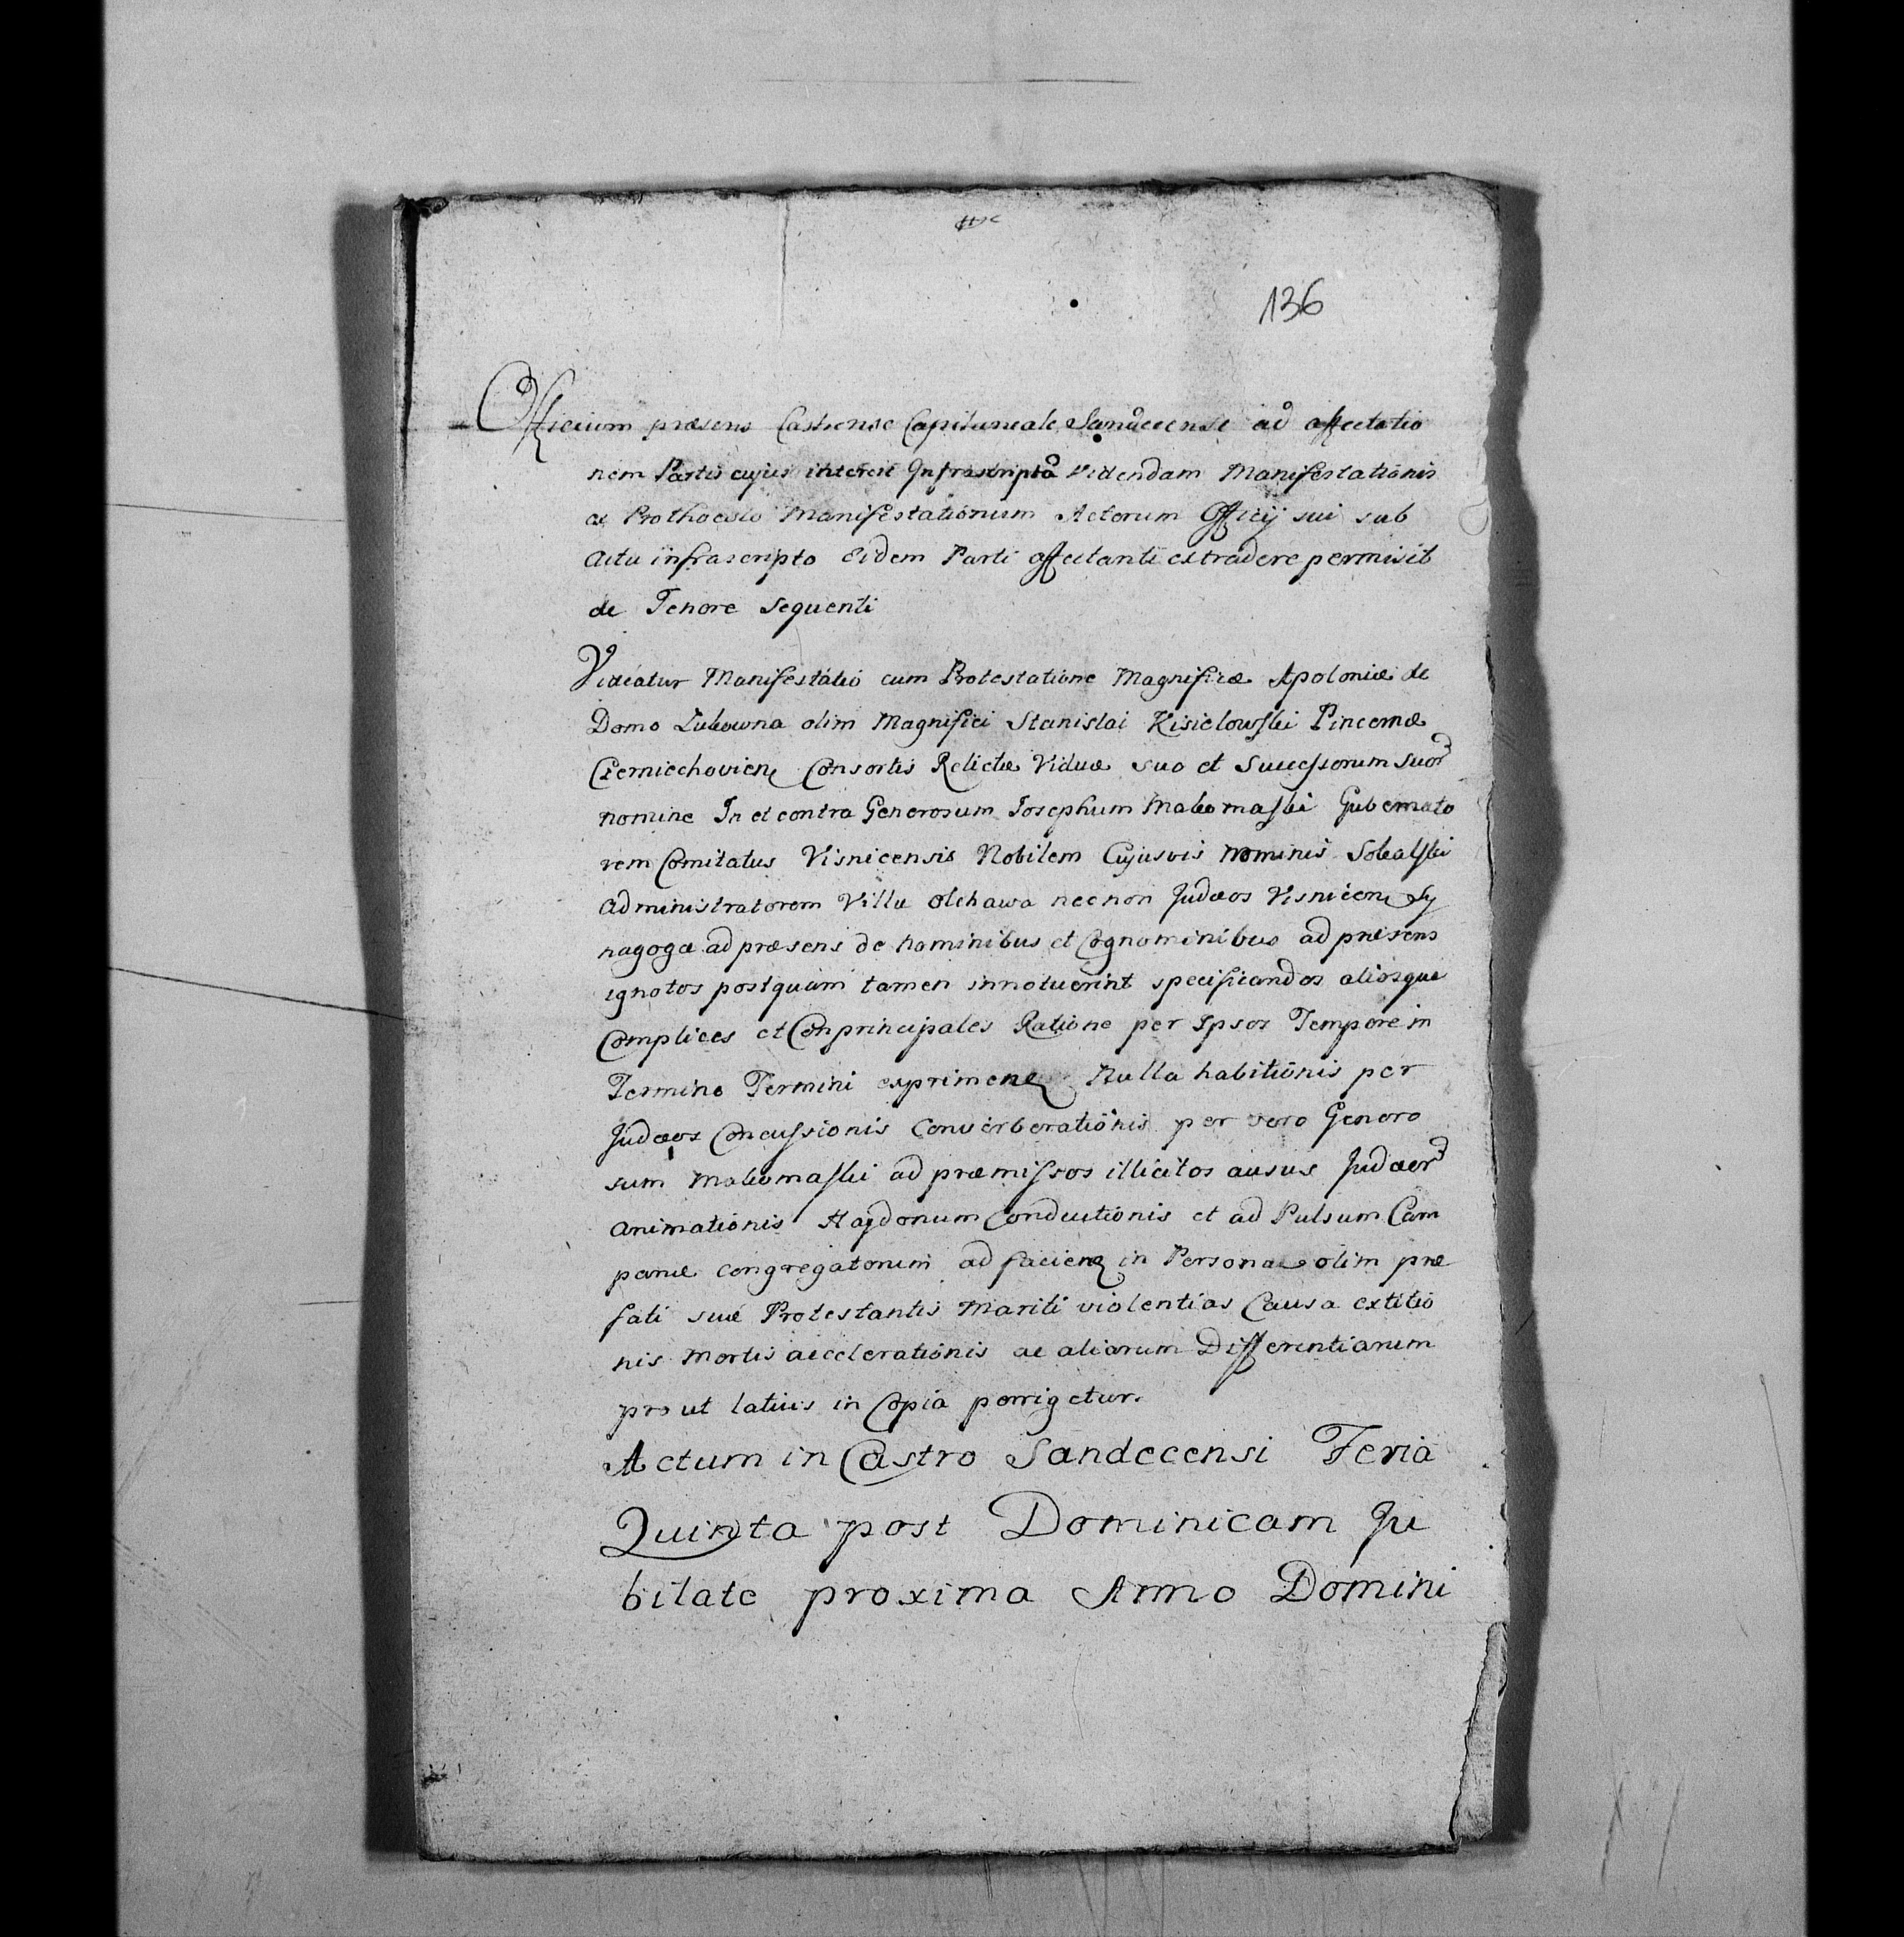 136
Officium præsens Castrense Capitaneale Sandecense ad affectatio
nem Partis cujus interest Infrascriptã Videndam Manifestationis
ex Prothocolo Manifestationum Actorum Officij sui sub
Actu infrascripto Eidem Parti affectanti extradere permisit
de Tenore sequenti
Videatur Manifestatio cum Protestatione Magnificæ Apoloniæ de
Domo Lukowna olim Magnifici Stanislai Kisielowski Pincernæ
Czerniechovien Consortis Relictæ Viduæ suo et Successorum suor
nomine In et contra Generosum Josephum Makomaski Gubernato
rem Comitatus Visnicensis Nobilem Cujusvis Nominis Sokalski
Administratorem Villæ Olchawa necnon Judæos Visnicen Sy
nagogæ ad præsens de Nominibus et Cognominibus ad præsens
ignotos postquam tamen innotuerint specificandos aliosque
Complices et Conprincipales Ratione per Ipsos Tempore in
Termino Termini exprimen Nulla habitionis per
Judæos Concussionis Converberationis per vero Genero
sum Makomaski ad præmissos illicitos ausus Judæor
Animationis Hajdonum Conductionis et ad Pulsum Cam
panæ congregatorum ad facien in Persona olim præ
fati suæ Protestantis Mariti violentias Causa extitio
nis Mortis accelerationis ac aliarum Differentiarum
prout latius in Copia porrigetur.
Actum in Castro Sandecensi Feria
Quinta post Dominicam Ju
bilate proxima Anno Domini